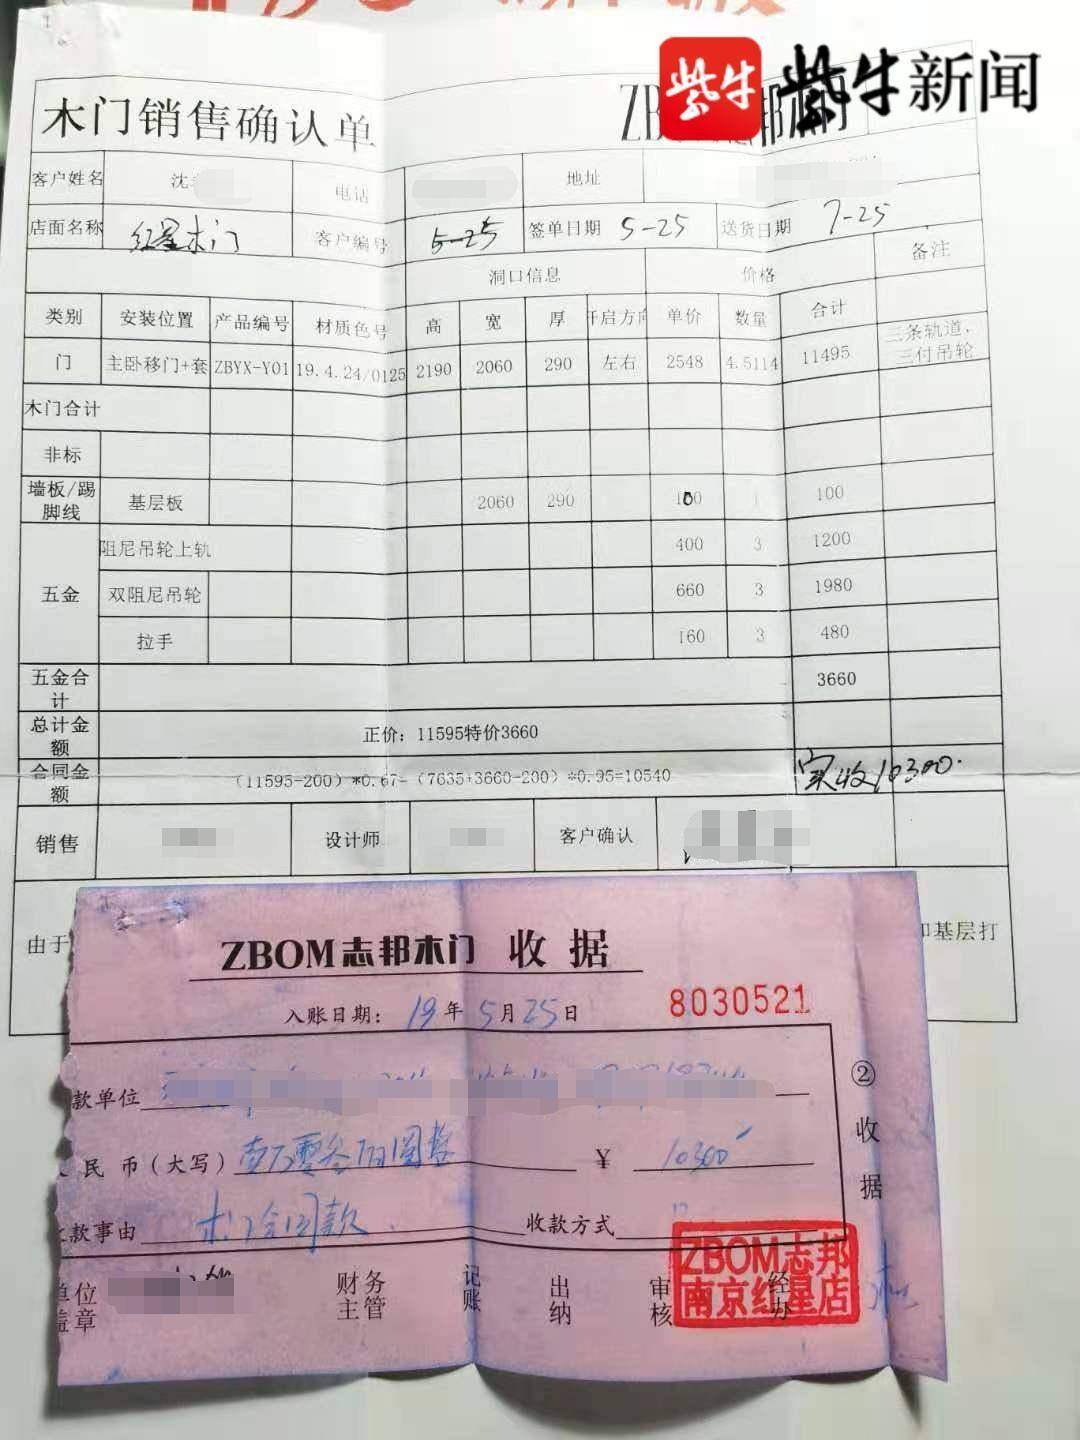 紫牛 紫牛新闻
木门销售确认单
客户姓名 沈 电话 地址
店面名称 红星木门 客户编号 5-25 签单日期 5-25 送货日期 7-25
洞口信息 价格 备注
类别 安装位置 产品编号 材质色号 高 宽 厚 开启方向 单价 数量 合计
门 主卧移门+套 ZBYX-Y01 19.4.24/0125 2190 2060 290 左右 2548 4.5114 11495 三条轨道，
三付吊轮
木门合计
非标
墙板/踢
脚线 基层板 2060 290 100 1 100
五金 阻尼吊轮上轨 400 3 1200
双阻尼吊轮 660 3 1980
拉手 160 3 480
五金合
计 3660
总计金
额 正价：11595特价3660
合同金
额 (11595-200)*0.67=(7635+3660-200)*0.95=10540 实收10300.
销售 设计师 客户确认
由于 基层打
ZBOM志邦木门 收据
入账日期：19年5月25日 8030521
款单位
民币(大写) 壹万零叁佰圆整 ¥ 10300
款事由 木门合同款 收款方式
② 收据
单位
盖章 财务
主管 记
账 出
纳 审
核 经
办
ZBOM志邦
南京红星店